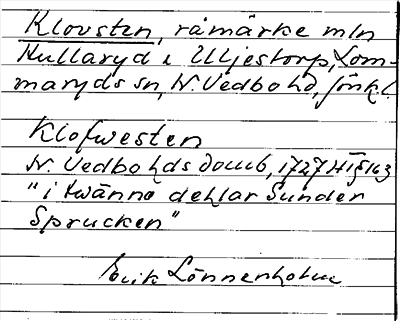 Klovsten, råmärke mln
Hullaryd & Uljestorp, Lom-
maryds sn, N. Vedbo hd, Jönk l.
Klofwesten
N. Vedbo hds domb, 1727 HT § 163
"i twänne dehlar Sunder
Sprucken"
Erik Lönnerholm